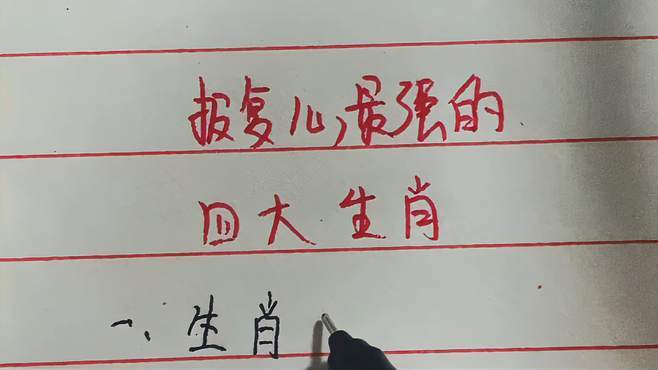 报复心最强的
四大生肖
一、生肖